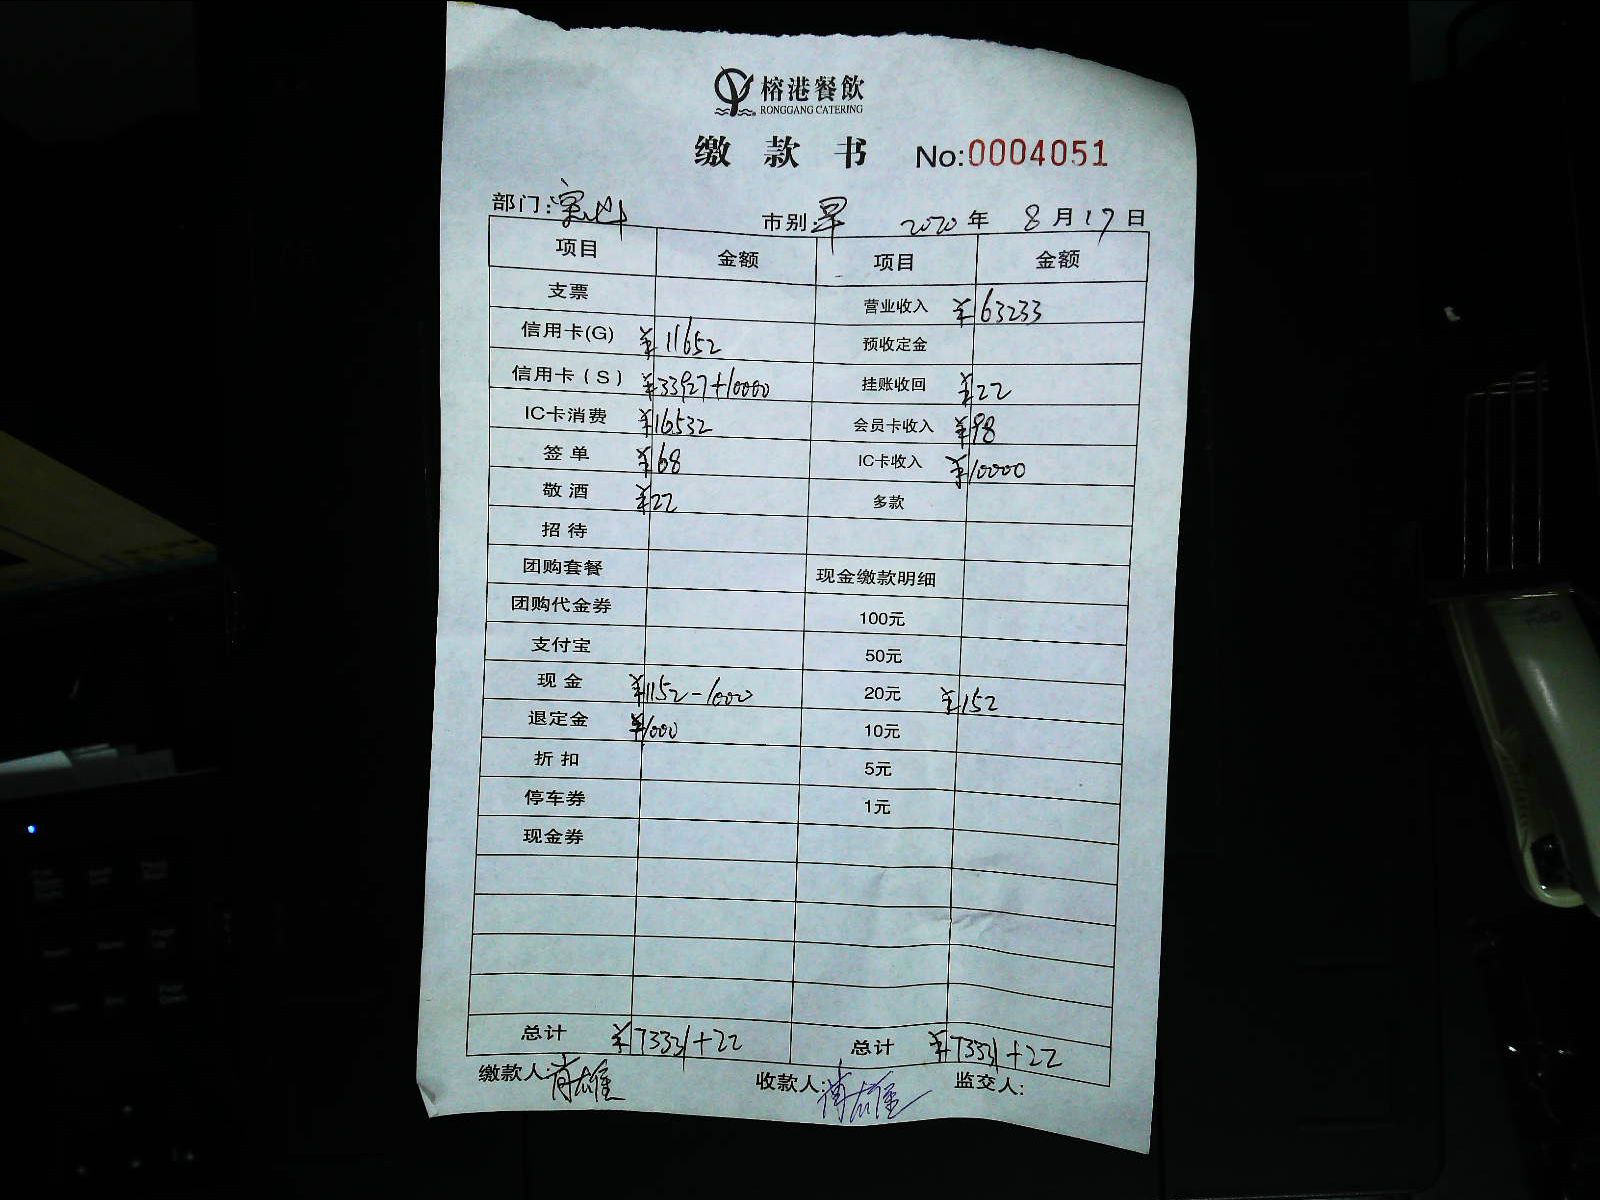 榕港餐飲
RONGGANG CATERING
缴 款 书 No:0004051
部门: 市别:早 2020年 8月17日
项目 金额 项目 金额
支票 营业收入 ¥63233
信用卡(G) ¥11652 预收定金
信用卡(S) ¥33927+10000 挂账收回 ¥22
IC卡消费 ¥16532 会员卡收入 ¥98
签单 ¥68 IC卡收入 ¥10000
敬酒 ¥22 多款
招待
团购套餐 现金缴款明细
团购代金券 100元
支付宝 50元
现金 ¥1152-1000 20元 ¥152
退定金 ¥1000 10元
折扣 5元
停车券 1元
现金券
总计 ¥73331+22 总计 ¥73331+22
缴款人: 收款人: 监交人: